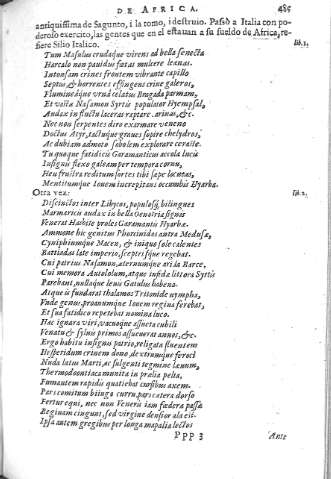 DE AFRICA. 485
antiquissima de Sagunto, i la tomo, i destruio. Passò a Italia con po-
deroso exercito, las gentes que en el estauan a su sueldo de Africa, re-
fiere Silio Italico. lib. 1.
Tum Masulus crudaque virens ad bella senecta
Harcalo non pauidus fœtas mulcere leænas.
Intonsam crines frontem vibrante capillo
Septus, & horrenteis effingens crine galeros,
Flumineáque vrna cælatus Bragada parmam,
Et vasta Nasamon Syrtis populator Hyempsal,
Audax in fluctu laceras raptare carinas, &c.
Nec non serpentes diro exarmare veneno
Doctus Atyr, tactuque graues sopire chelydros,
Ac dubiam admoto sobolem explorare ceraste.
Tu quoque fatidicis Garamanticus accola lucis
Insignis flexo galeam per tempora cornu,
Heu frustra reditum sortes tibi sæpe locutas,
Mentitumque Iouem increpitans occumbis Hyarba.
Otra vez: lib. 2.
Discinctos inter Libyas, populosq; bilingues
Marmaricis audax in bella Oenotria signis
Venerat Hasbite proles Garamantis Hyarbæ.
Ammone hic genitus Phorcinidos antra Medusæ,
Cyniphiumque Macen, & iniquo sole calentes
Battiadas late imperio, sceptrisque regebat.
Cui patrius Nasamon, æternumque arida Barce,
Cui nemora Autololum, atque infidæ littora Syrtis
Parebant, nullaque leuis Gætulus habena.
Atque is fundarat thalamos Tritonide nympha,
Vnde genus, proauumque Iouem regina ferebat,
Et sua fatidico repetebat nomina luco.
Hæc ignara viri, vacuoque assueta cubili
Venatu & syluis primos assueuerat annos, &c.
Ergo habitu insignis patrio, religata fluentem
Hesperidum crinem dono, dextrumque feroci
Nuda latus Marti, ac fulgenti tegmine lævum,
Thermodoontiaca munita in prælia pelta,
Fumantem rapidis quatiebat cursibus axem.
Pars comitum biiugo curru, pars cætera dorso
Fertur equi, nec non Veneris iam fœdera passæ
Reginam cingunt, sed virgine densior ala est.
Ipsa antem gregibus per longa mapalia lectos
PPP 3 Ante